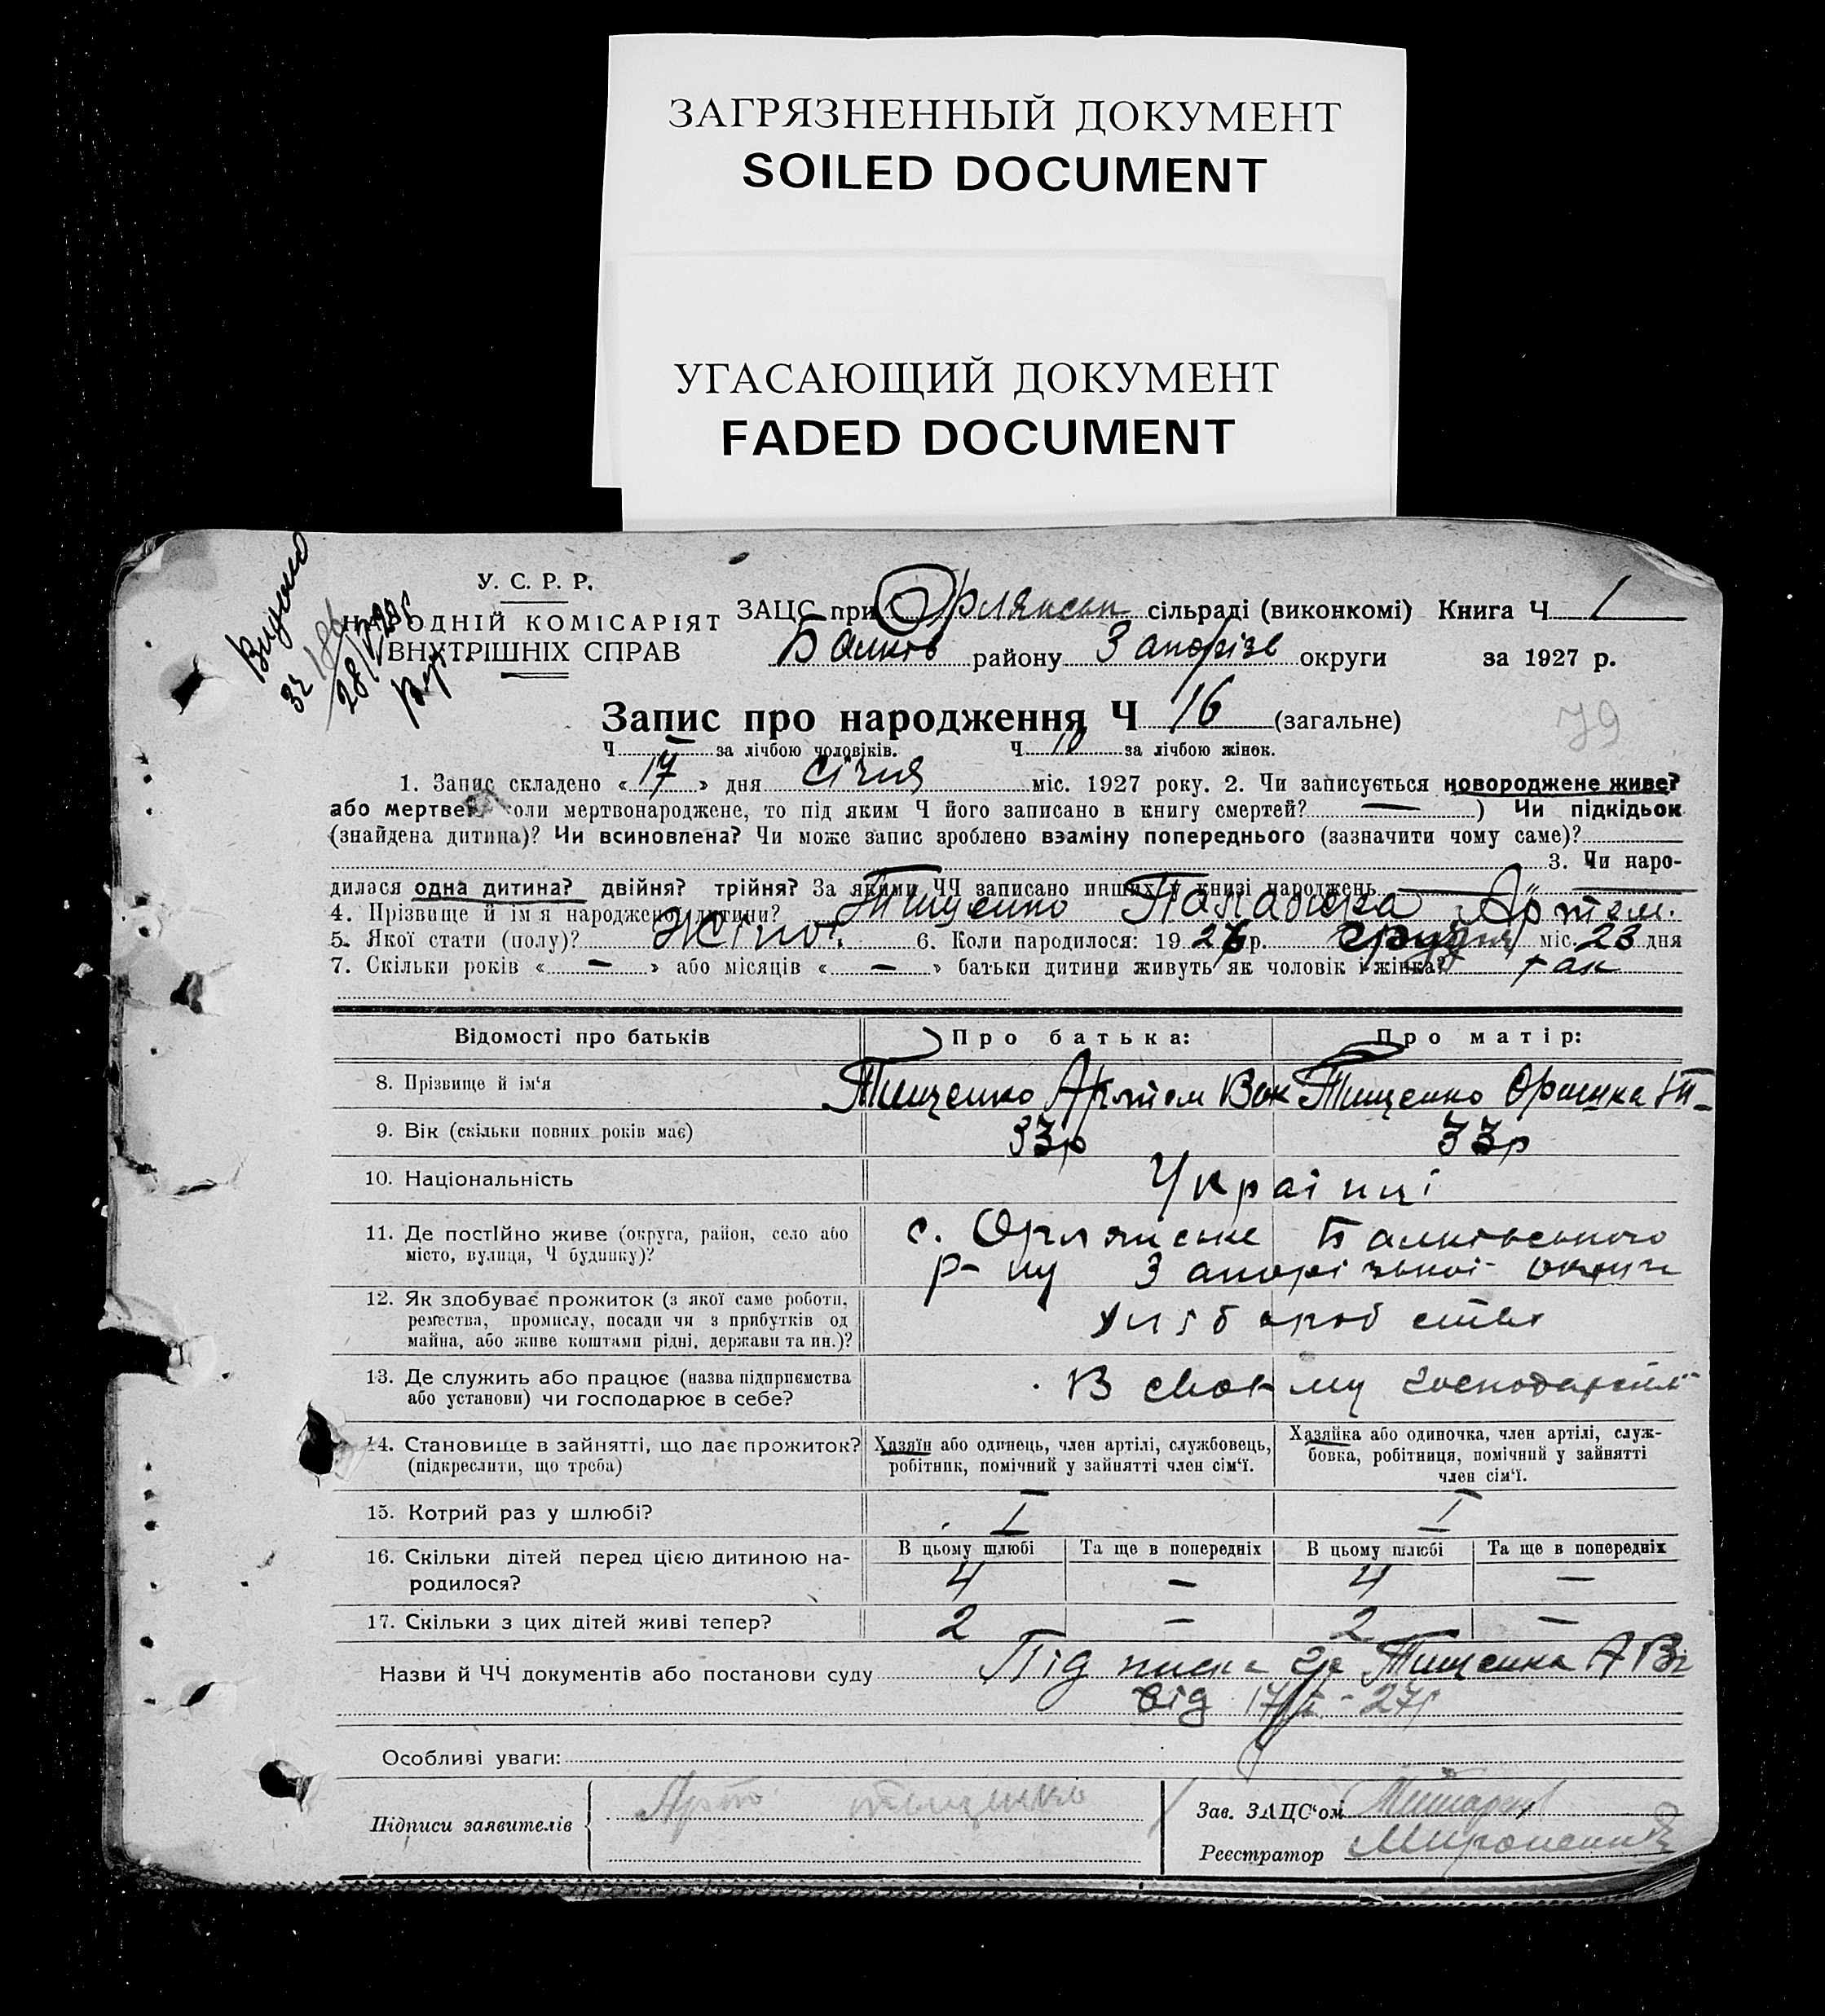 ЗАГРЯЗНЕННЫЙ ДОКУМЕНТ
SOILED DOCUMENT
УГАСАЮЩИЙ ДОКУМЕНТ
FADED DOCUMENT
У. С. Р. Р.
НАРОДНІЙ КОМІСАРІЯТ
ВНУТРІШНІХ СПРАВ
ЗАЦС при Орлянськ сільраді (виконкомі) Книга Ч 1
Балків району Запорізь округи за 1927 р.
Запис про народження Ч 16 (загальне)
79
Ч — за лічбою чоловіків. Ч 10 за лічбою жінок.
1. Запис складено « 17 » дня січня міс. 1927 року. 2. Чи записується новороджене живе?
або мертве коли мертвонароджене, то під яким Ч його записано в книгу смертей? — ) Чи підкідьок
(знайдена дитина)? Чи всиновлена? Чи може запис зроблено взаміну попереднього (зазначити чому саме)?
3. Чи наро-
дилася одна дитина? двійня? трійня? За якими ЧЧ записано инших у книзі народжень —
4. Прізвище й ім'я народженої дитини? Тищенко Артем.
5. Якої стати (полу)? жіно. 6. Коли народилося: 19 26 р. грудня міс. 23 дня
7. Скільки років « — » або місяців « — » батьки дитини живуть як чоловік і жінка? так
Відомості про батьків
Про батька:
Про матір:
8. Прізвище й ім'я
Тищенко Артем
Тищенко Оришка
9. Вік (скільки повних років має)
33р
33р
10. Національність
Українці
11. Де постійно живе (округа, район, село або
місто, вулиця, Ч будинку)?
с. Орлянське Балківського
р-ну Запорізької округи
12. Як здобуває прожиток (з якої саме роботи,
ремества, промислу, посади чи з прибутків од
майна, або живе коштами рідні, держави та ин.)?
хліборобство
13. Де служить або працює (назва підприємства
або установи) чи господарює в себе?
В своєму господарстві
14. Становище в зайнятті, що дає прожиток?
(підкреслити, що треба)
Хазяїн або одинець, член артілі, службовець,
робітник, помічний у зайнятті член сім'ї.
Хазяйка або одиночка, член артілі, служ-
бовка, робітниця, помічний у зайнятті
член сім'ї.
15. Котрий раз у шлюбі?
I
I
16. Скільки дітей перед цією дитиною на-
родилося?
В цьому шлюбі Та ще в попередніх В цьому шлюбі Та ще в попередніх
4 — 4 —
17. Скільки з цих дітей живі тепер?
2 — 2 —
Назви й ЧЧ документів або постанови суду Підписка гр Тищенка А
від 17/I - 27р
Особливі уваги:
Підписи заявителів
Арт тищенко
Зав. ЗАЦС'ом
Реєстратор